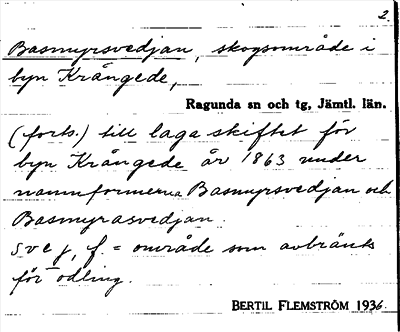 2.
Basmyrsvedjan, skogsområde i
byn Krångede,
Ragunda sn och tg, Jämtl. län.
(forts.) till laga skiftet för
byn Krångede år 1863 under
namnformerna Basmyrsvedjan och
Basmyrasvedjan.
svej, f. = område som avbränts
för odling.
BERTIL FLEMSTRÖM 1936.